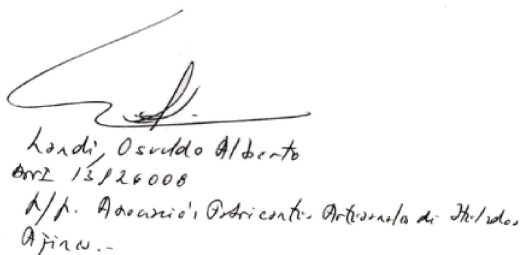 Landi, Osvaldo Alberto
DNI 13126008
p/p. Asociación Fabricantes Artesanales de Helados
Afines.-